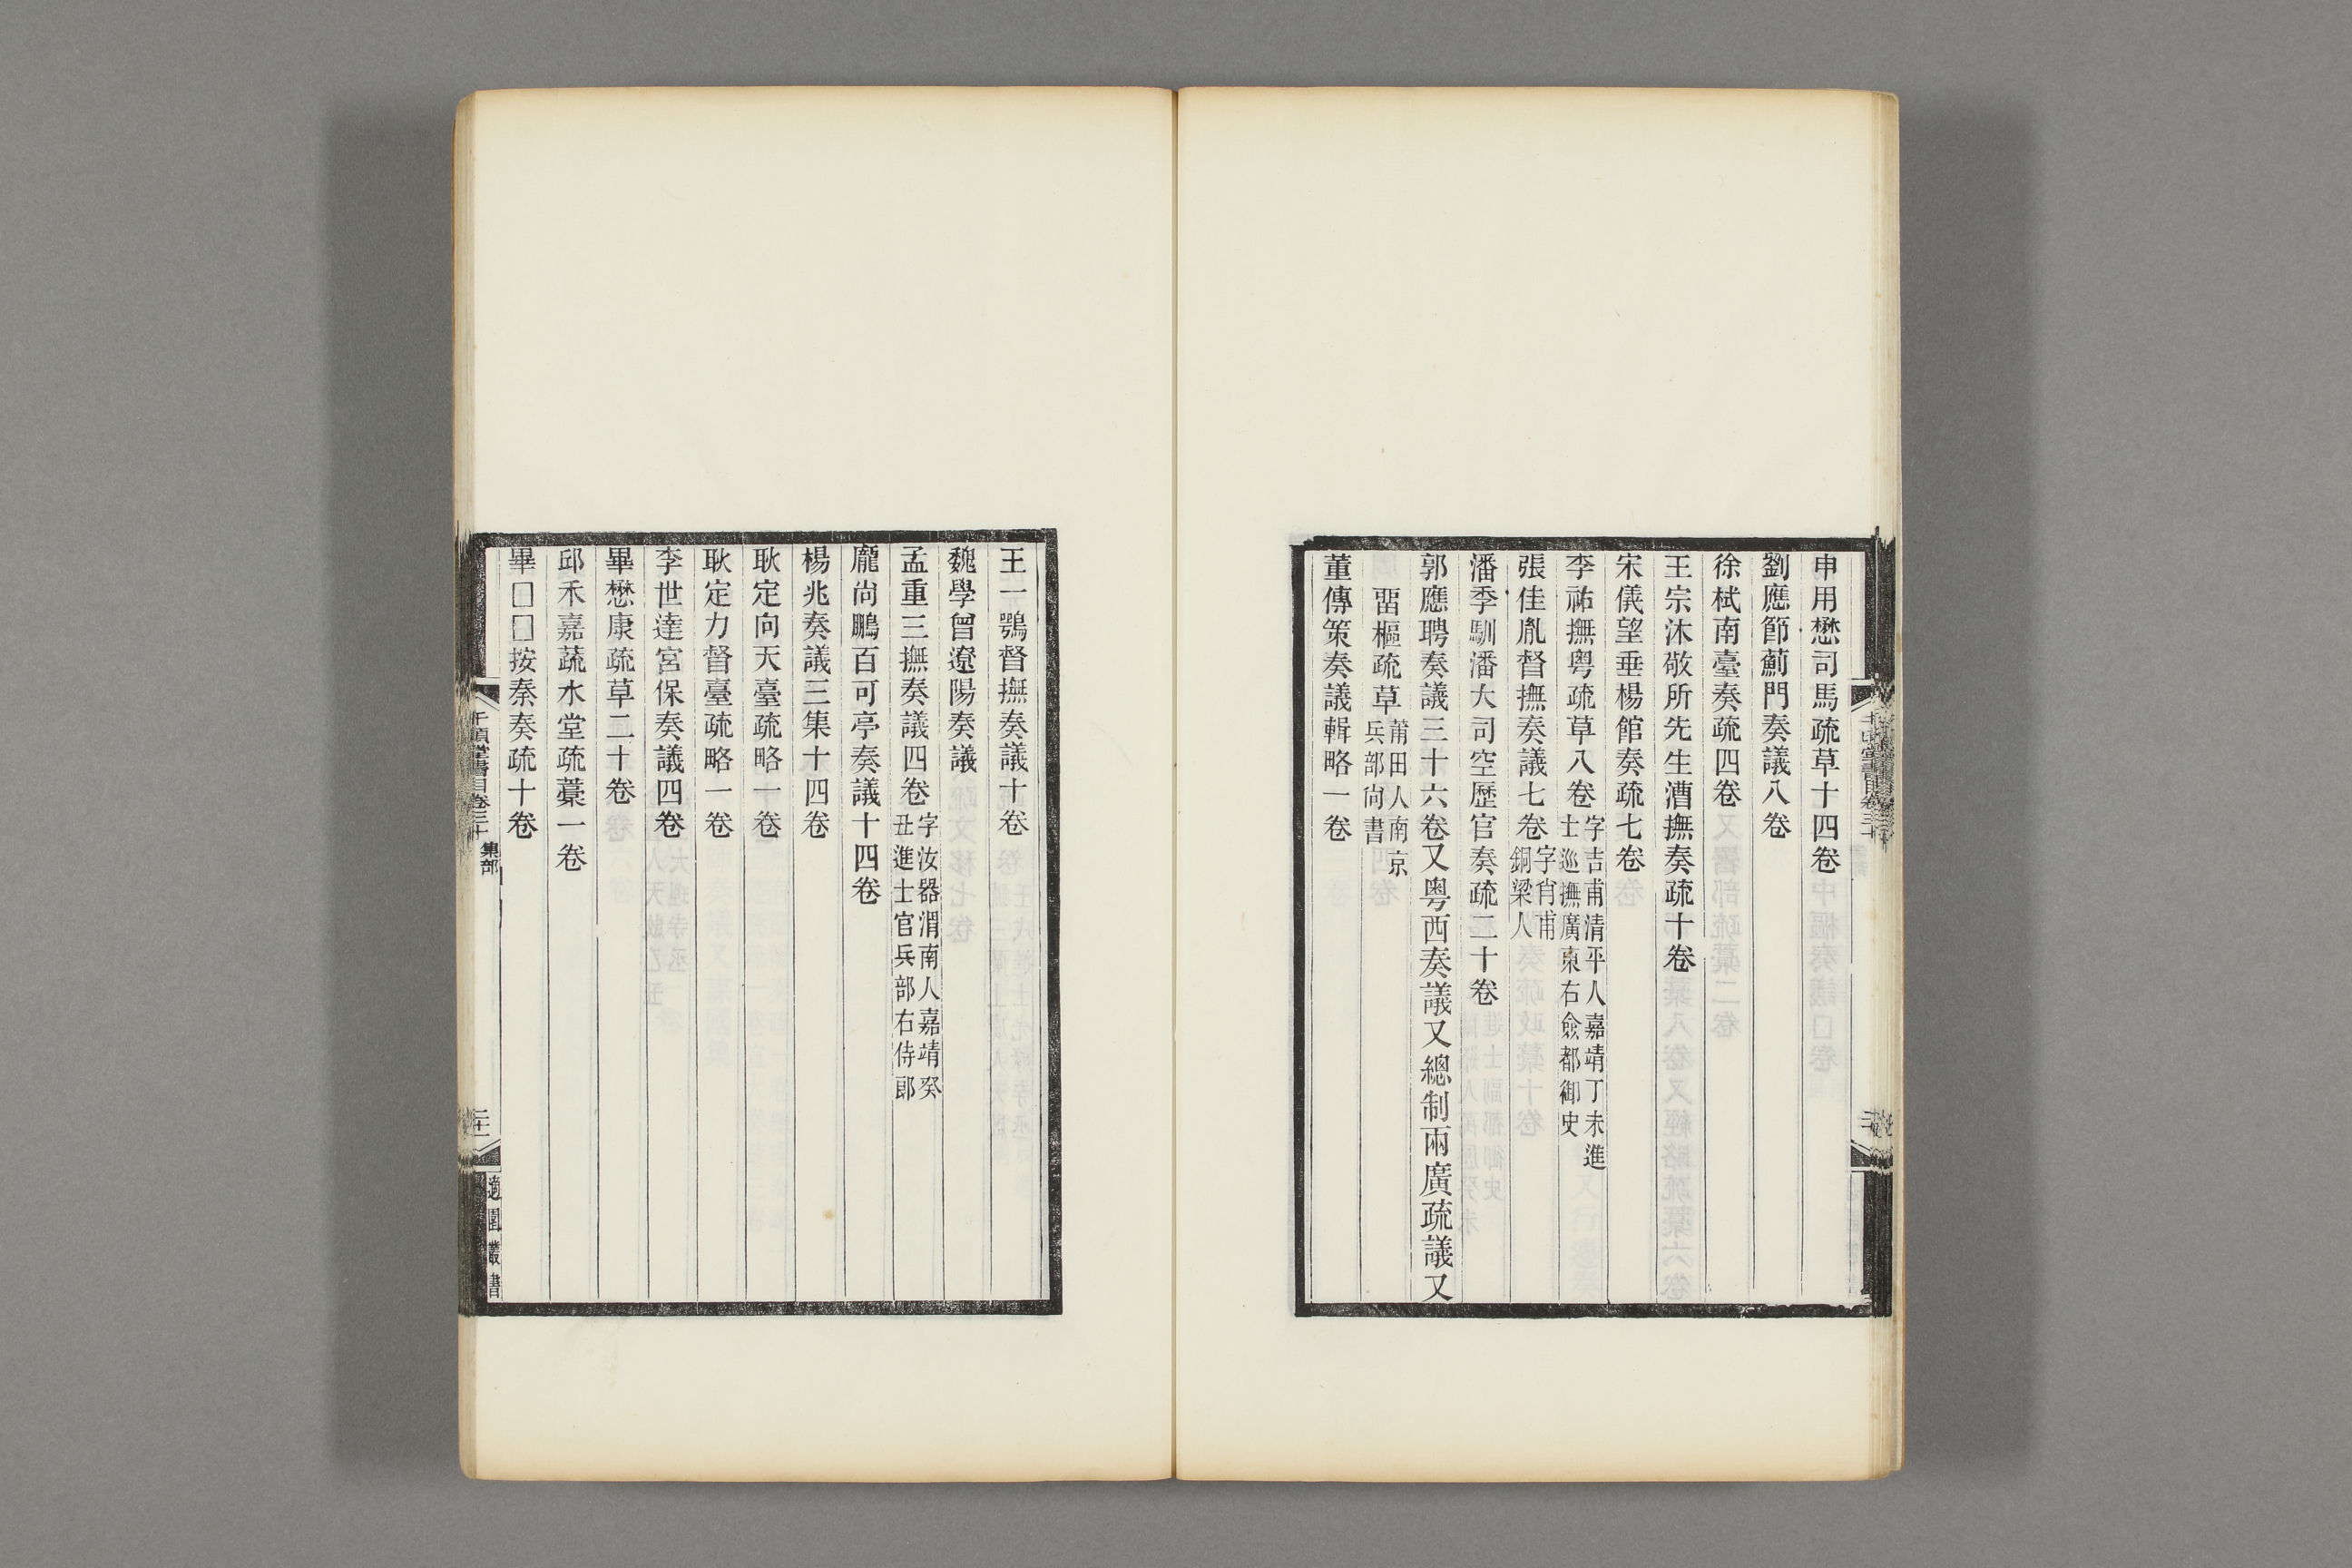 申用懋司馬疏草十四卷
劉應節薊門奏議八卷
徐栻南臺奏疏四卷
王宗沐敬所先生漕撫奏疏十卷
宋儀望垂楊館奏疏七卷
李祐撫粤疏草八卷字吉甫清平人嘉靖丁未進士巡撫廣東右僉都御史
張佳胤督撫奏議七卷字肖甫銅梁人
潘季馴潘大司空歷官奏疏二十卷
郭應聘奏議三十六卷又粤西奏議又總制兩廣疏議又
畱樞疏草莆田人南京兵部尚書
董傳策奏議輯略一卷
王一鶚督撫奏議十卷
魏學曾遼陽奏議
孟重三撫奏議四卷字汝器渭南人嘉靖癸丑進士官兵部右侍郎
龐尚鵬百可亭奏議十四卷
楊兆奏議三集十四卷
耿定向天臺疏略一卷
耿定力督臺疏略一卷
李世達宮保奏議四卷
畢懋康疏草二十卷
邱禾嘉蔬水堂疏藁一卷
畢□□按秦奏疏十卷
千頃堂書目卷三十 集部
二十一
適園叢書